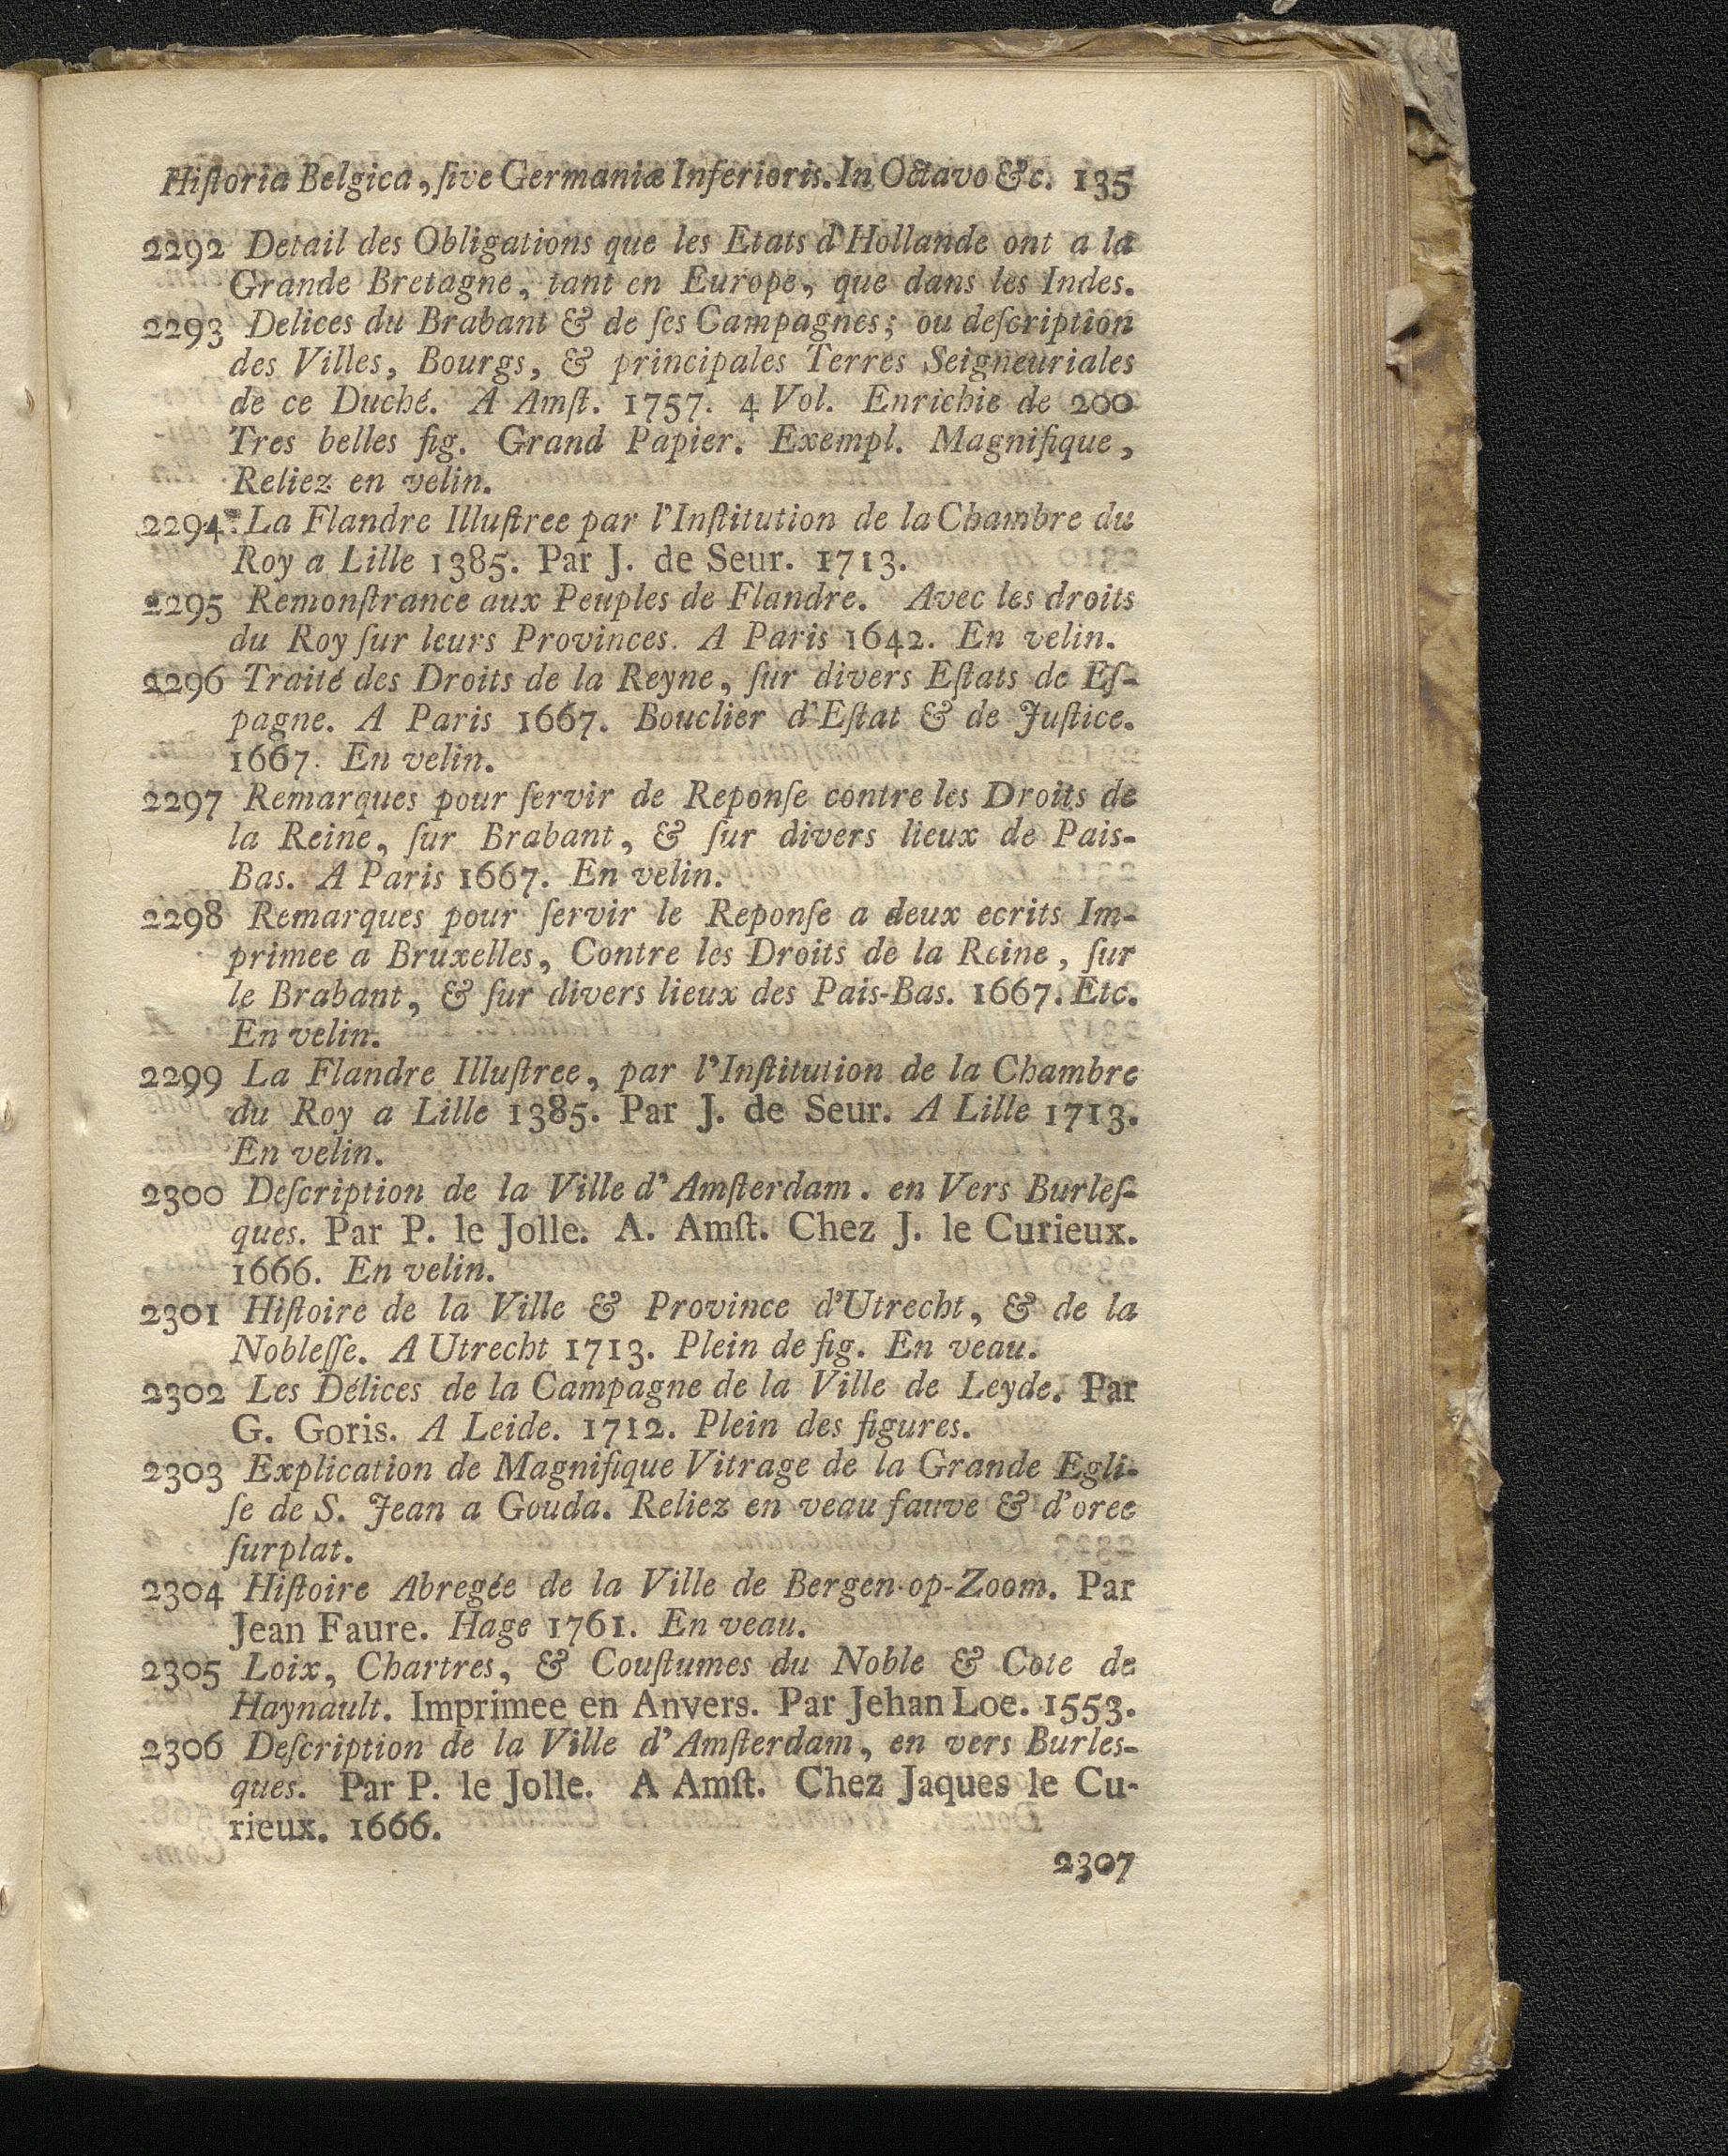 Hiſtoria Belgica, ſive Germaniæ Inferioris. In Octavo &c. 135
2292 Detail des Obligations que les Etats d'Hollande ont a la
Grande Bretagne, tant en Europe, que dans les Indes.
2293 Delices du Brabant & de ſes Campagnes; ou deſcription
des Villes, Bourgs, & principales Terres Seigneuriales
de ce Duché. A Amſt. 1757. 4 Vol. Enrichie de 200
Tres belles fig. Grand Papier. Exempl. Magnifique,
Reliez en velin.
2294 La Flandre Illuſtree par l'Inſtitution de la Chambre du
Roy a Lille 1385. Par J. de Seur. 1713.
2295 Remonſtrance aux Peuples de Flandre. Avec les droits
du Roy ſur leurs Provinces. A Paris 1642. En velin.
2296 Traité des Droits de la Reyne, ſur divers Eſtats de Eſ-
pagne. A Paris 1667. Bouclier d'Eſtat & de Juſtice.
1667. En velin.
2297 Remarques pour ſervir de Reponſe contre les Droits de
la Reine, ſur Brabant, & ſur divers lieux de Pais-
Bas. A Paris 1667. En velin.
2298 Remarques pour ſervir le Reponſe a deux ecrits Im-
primee a Bruxelles, Contre les Droits de la Reine, ſur
le Brabant, & ſur divers lieux des Pais-Bas. 1667. Etc.
En velin.
2299 La Flandre Illuſtree, par l'Inſtitution de la Chambre
du Roy a Lille 1385. Par J. de Seur. A Lille 1713.
En velin.
2300 Deſcription de la Ville d'Amſterdam. en Vers Burleſ-
ques. Par P. le Jolle. A. Amſt. Chez J. le Curieux.
1666. En velin.
2301 Hiſtoire de la Ville & Province d'Utrecht, & de la
Nobleſſe. A Utrecht 1713. Plein de fig. En veau.
2302 Les Délices de la Campagne de la Ville de Leyde. Par
G. Goris. A Leide. 1712. Plein des figures.
2303 Explication de Magnifique Vitrage de la Grande Egli-
ſe de S. Jean a Gouda. Reliez en veau fauve & d'oree
ſurplat.
2304 Hiſtoire Abregée de la Ville de Bergen-op-Zoom. Par
Jean Faure. Hage 1761. En veau.
2305 Loix, Chartres, & Couſtumes du Noble & Cote de
Haynault. Imprimee en Anvers. Par Jehan Loe. 1553.
2306 Deſcription de la Ville d'Amſterdam, en vers Burles-
ques. Par P. le Jolle. A Amſt. Chez Jaques le Cu-
rieux. 1666.
2307